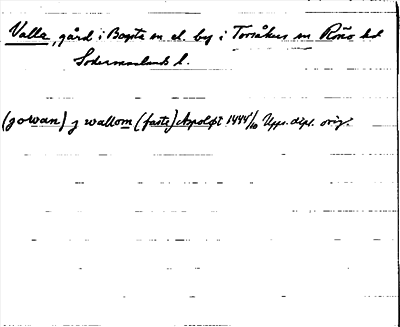 Valla, gård i Bogsta sn el. by i Torsåkers sn Rönö hd
Södermanlands l.
(jowan) j wallom (faste) 1444 1/10 Upps. dipl. orig.